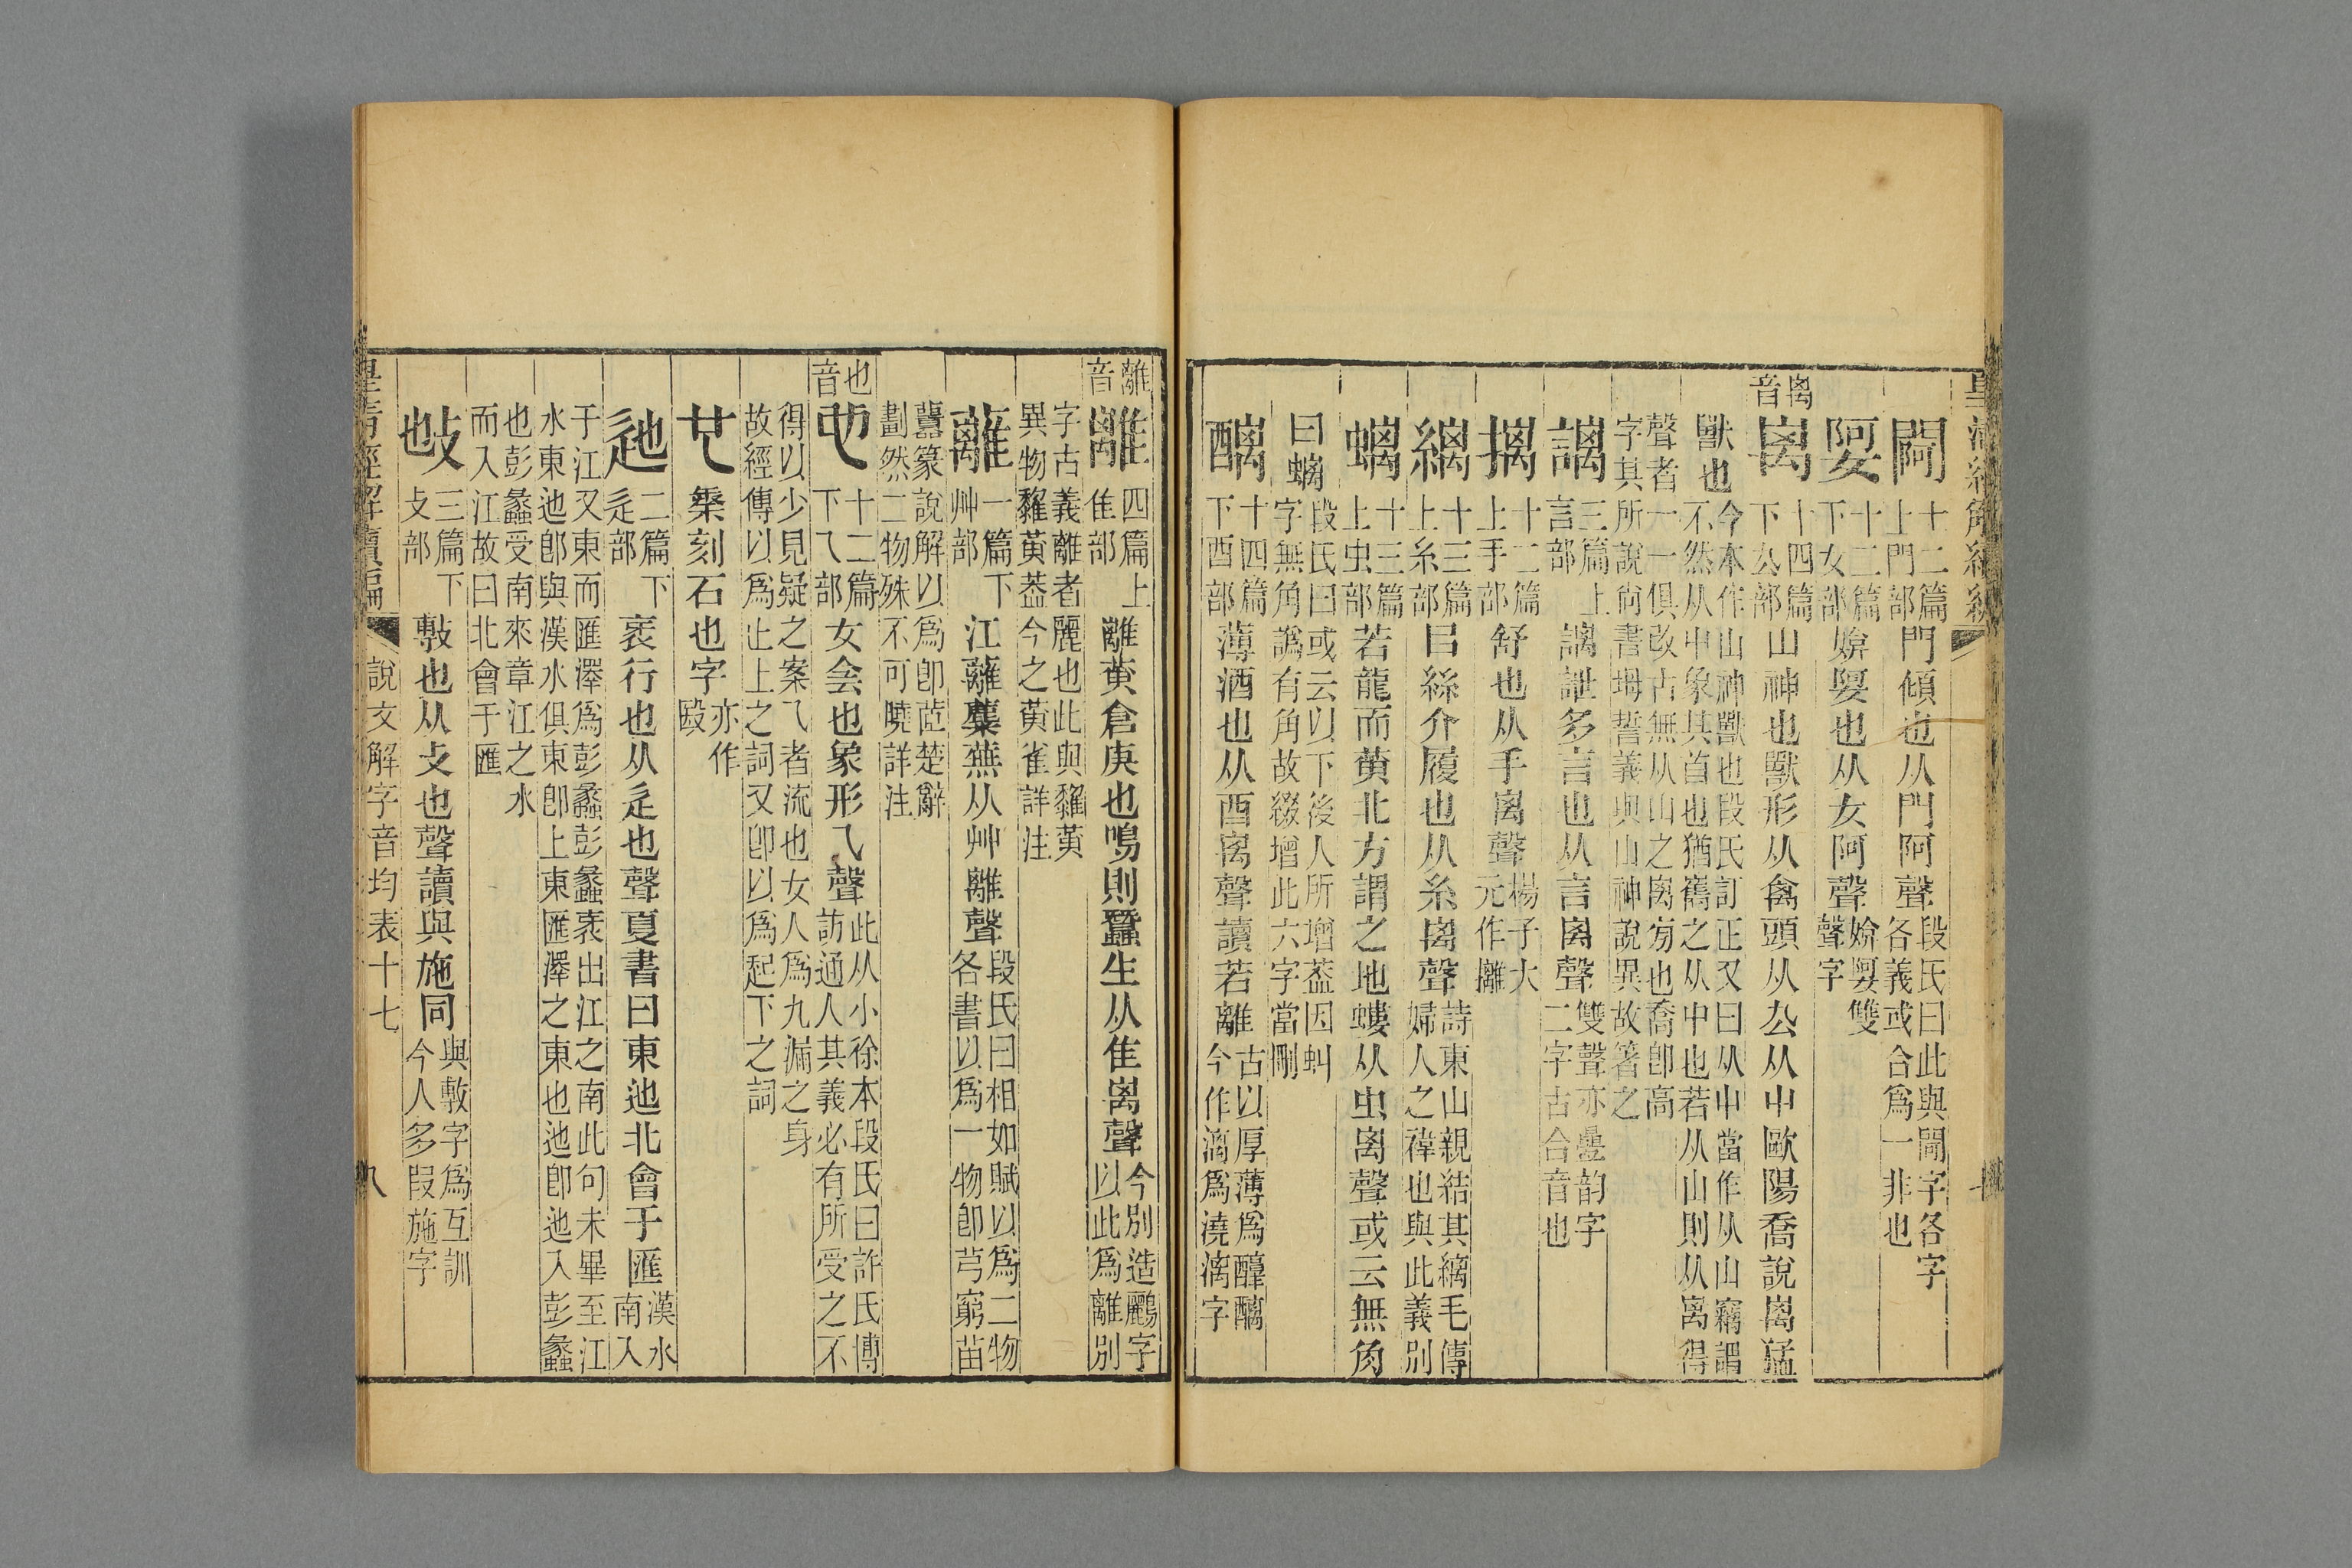 皇清經解續編
䦍十二篇上門部門傾也从門阿聲段氏曰此與閜字各字各義或合爲一非也
娿十二篇下女部媕娿也从女阿聲媕娿雙聲字
离音
离十四篇下厹部山神也獸形从禽頭从厹从屮歐陽喬說离猛
獸也今本作山神獸也段氏訂正又曰从屮當作从山竊謂不然从屮象其首也猶舊之从屮也若从山則从离得
聲者一一俱改古無从山之离㫄也喬卽高字其所說尙書坶誓義與山神說異故箸之
謧三篇上言部謧詍多言也从言离聲雙聲亦疊韵字二字古合音也
摛十二篇上手部舒也从手离聲楊子大元作攡
縭十三篇上糸部㠯絲介履也从糸离聲詩東山親結其縭毛傳婦人之褘也與此義別
螭十三篇上虫部若龍而黃北方謂之地螻从虫离聲或云無角
曰螭段氏曰或云以下後人所增葢因虯字無角譌有角故綴增此六字當刪
醨十四篇下酉部薄酒也从酉离聲讀若離古以厚薄爲醇醨今作漓爲澆漓字
離音
離四篇上隹部離黃倉庚也鳴則蠶生从隹离聲今別造鸝字以此爲離別
字古義離者麗也此與䨄黃異物䨄黃葢今之黃雀詳注
蘺一篇下艸部江蘺蘪蕪从艸離聲段氏曰相如賦以爲二物各書以爲一物卽芎藭苗
虈篆說解以爲卽茝楚辭劃然二物殊不可曉詳注
也音
也十二篇下乁部女会也象形乁聲此从小徐本段氏曰許氏博訪通人其義必有所受之不
得以少見疑之案乁者流也女人爲九漏之身故經傳以爲止上之詞又卽以爲起下之詞
𠃟秦刻石也字亦作殹
迆二篇下辵部衺行也从辵也聲夏書曰東迆北會于匯漢水南入
于江又東而匯澤爲彭蠡彭蠡衺出江之南此句未畢至江水東迆卽與漢水俱東卽上東匯澤之東也迆卽迆入彭蠡
也彭蠡受南來章江之水而入江故曰北會于匯
𢻱三篇下攴部敷也从攴也聲讀與施同與敷字爲互訓今人多叚施字
皇清經解續編
說文解字音均表十七
八